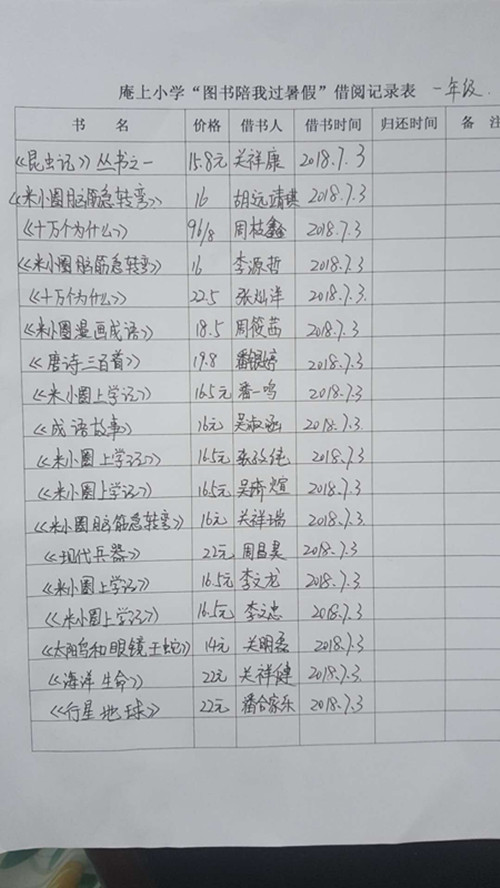 庵上小学“图书陪我过暑假”借阅记录表 一年级
书 名 价格 借书人 借书时间 归还时间 备 注
《昆虫记》丛书之一 15.8元 关祥康 2018.7.3
《米小圈脑筋急转弯》 16 胡远靖祺 2018.7.3
《十万个为什么》 96/8 周枝鑫 2018.7.3
《米小圈脑筋急转弯》 16 李源哲 2018.7.3
《十万个为什么》 22.5 张灿洋 2018.7.3.
《米小圈漫画成语》 18.5 周筱茜 2018.7.3
《唐诗三百首》 19.8 潘银婷 2018.7.3
《米小圈上学记》 16.5元 潘一鸣 2018.7.3
《成语故事》 16元 吴淑函 2018.7.3
《米小圈上学记》 16.5元 张 2018.7.3
《米小圈上学记》 16.5元 吴 煊 2018.7.3
《米小圈脑筋急转弯》 16元 关祥瑞 2018.7.3
《现代兵器》 22元 周昌昊 2018.7.3
《米小圈上学记》 16.5元 李文龙 2018.7.3
《米小圈上学记》 16.5元 李文忠 2018.7.3
《太阳鸟和眼镜王蛇》 14元 关明磊 2018.7.3
《海洋生命》 22元 关祥健 2018.7.3
《行星地球》 22元 潘合家乐 2018.7.3